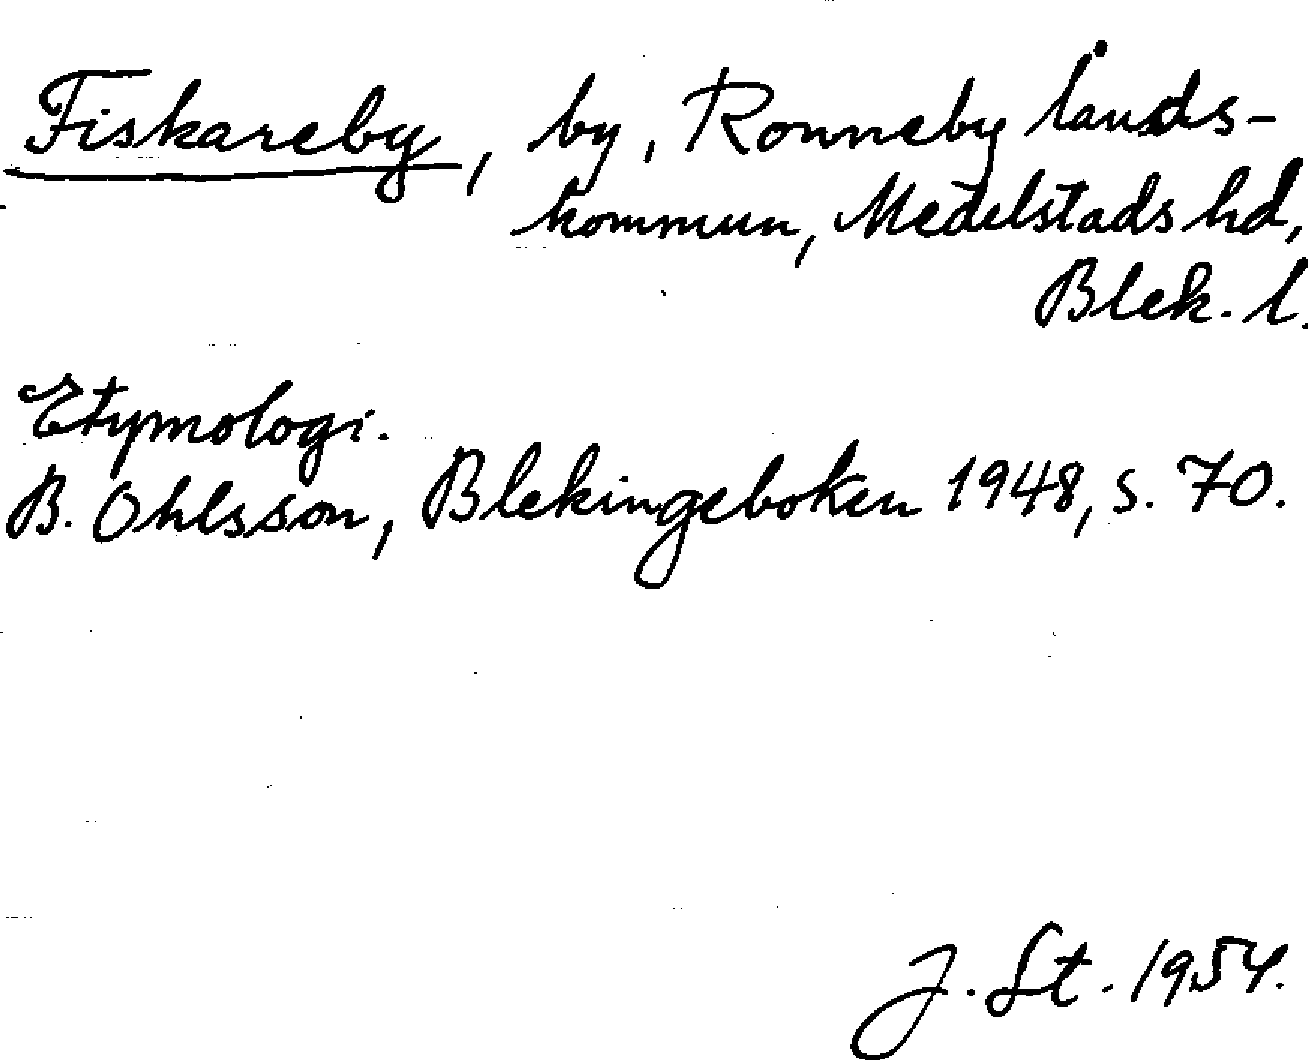 Fiskareby, by, Ronneby lands-
kommun, Medelstads hd,
Blek. l.
Etymologi.
B. Ohlsson, Blekingeboken 1948, s. 70.
J. St. 1954.